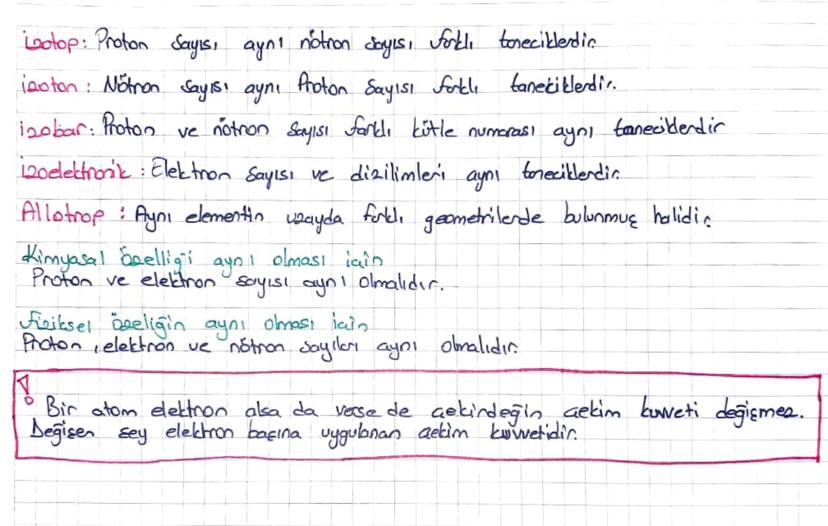 izotop: Proton sayısı aynı nötron sayısı farklı taneciklerdir.
izoton: Nötron sayısı aynı Proton sayısı farklı taneciklerdir.
izobar: Proton ve nötron sayısı farklı kütle numarası aynı taneciklerdir
izoelektronik: Elektron sayısı ve dizilimleri aynı taneciklerdir.
Allotrop: Aynı elementin uzayda farklı geometrilerde bulunmuş halidir.
Kimyasal özelliği aynı olması için
Proton ve elektron sayısı aynı olmalıdır.
Fiziksel özeliğin aynı olması için
Proton, elektron ve nötron sayıları aynı olmalıdır.
! Bir atom elektron alsa da verse de çekirdeğin çekim kuvveti değişmez.
Değişen şey elektron başına uygulanan çekim kuvvetidir.